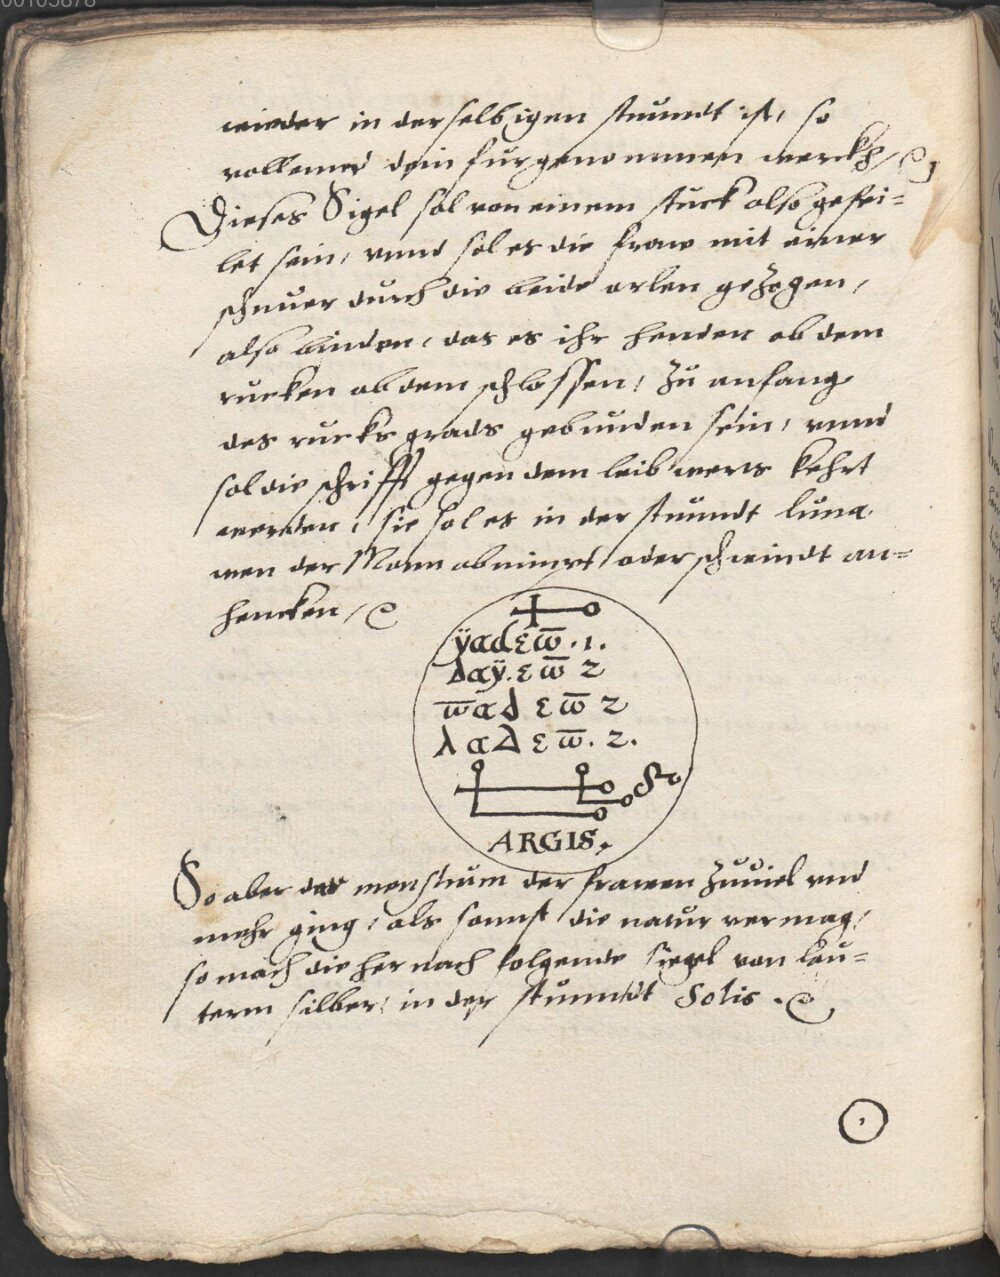 00105878
wieder in derselbigen stuundt ist, so
vollennd dein furgenommen werckh,
Dieses Sigel sol von einem stuck also gefei-
let sein, vnnd sol es die fraw mit einer
schnuer durch die beide orlen gezogen,
also binden, das es ihr henden ob dem
rucken ob dem schlossen, zu anfang
des rucks grads gebunden sein, vnnd
sol die schrifft gegen dem leib werts kehrt
werden, sie sol es in der stuundt luna,
wen der Monn abnimpt oder schwindt an-
hencken,
ÿadεω̅ .1.
λaÿ.εω̅ 2
ω̅ad εω̅ 2
λaΔεω̅. 2.
ARGIS,
So aber das menstruum der frawen zuuiel vnd
mehr ging, als sonnst die natur vermag,
so mach die hernach folgende siegel von leu-
term silber, in der stuundt Solis.